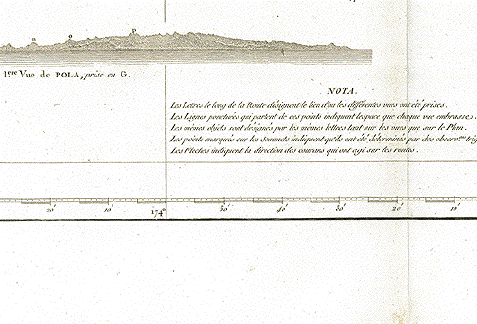 n o p
1ere Vue de POLA, prise en G.
NOTA.
Les Lettres le long de la Route désignent le lieu d'ou les différentes vues ont été prises.
Les Lignes ponctuées qui partent de ces points indiquent l'espace que chaque vue embrasse.
Les mêmes objets sont désignés par les mêmes lettres tant sur les vues que sur le Plan.
Les points marqués sur les Sommets indiquent qu'ils ont été déterminés par des observons trig
Les Flèches indiquent la direction des courans qui ont agi sur les routes.
20' 10' 174° 50' 40' 30' 20' 10'